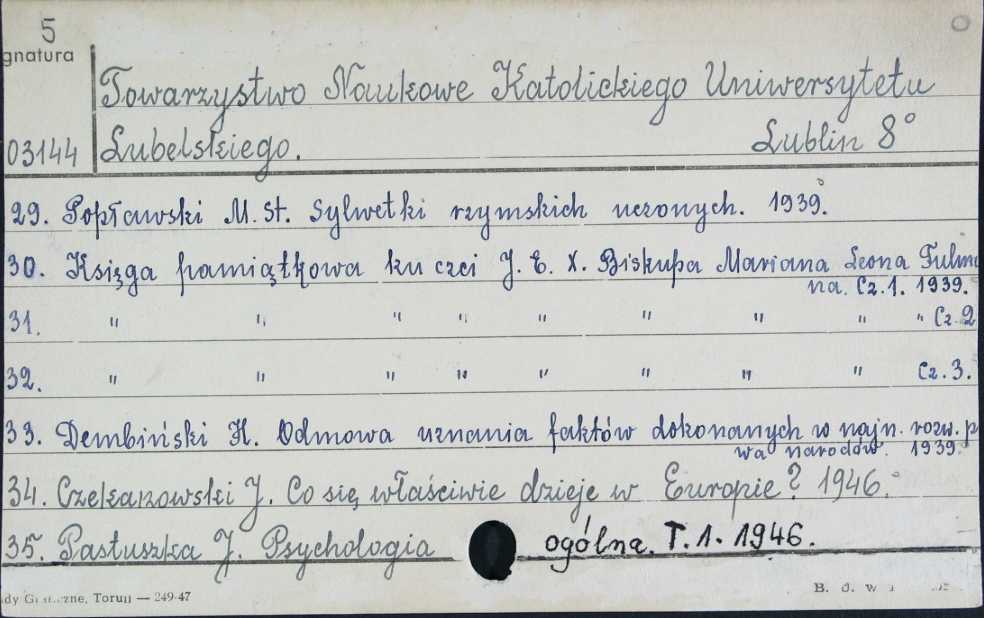 5
gnatura
Towarzystwo Naukowe Katolickiego Uniwersytetu
03144 Lubelskiego. Lublin 8°
29. Popławski M. St. Sylwetki rzymskich uczonych. 1939.
30. Księga pamiątkowa ku czci J. E. X. Biskupa Mariana Leona Fulma
na. Cz. 1. 1939.
31. " " " " " " " " " Cz. 2
32. " " " " " " " " Cz. 3.
33. Dembiński H. Odmowa uznania faktów dokonanych w najn. rozw. p
wa narodów. 1939.
34. Czekanowski J. Co się właściwie dzieje w Europie? 1946.
35. Pastuszka J. Psychologia ogólna. T. 1. 1946.
Toruń — 249-47